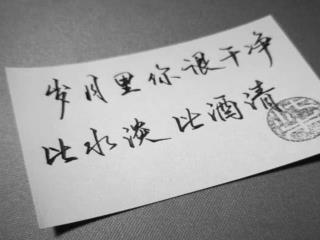 岁月里你很干净
比水淡比酒清